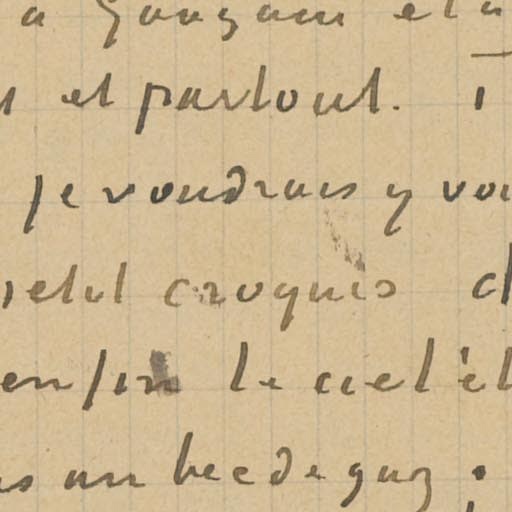 a Gauguin et a
et partout.
je voudrais y voi
etit croquis d
enfin le ciel ét
s un bec de gaz.